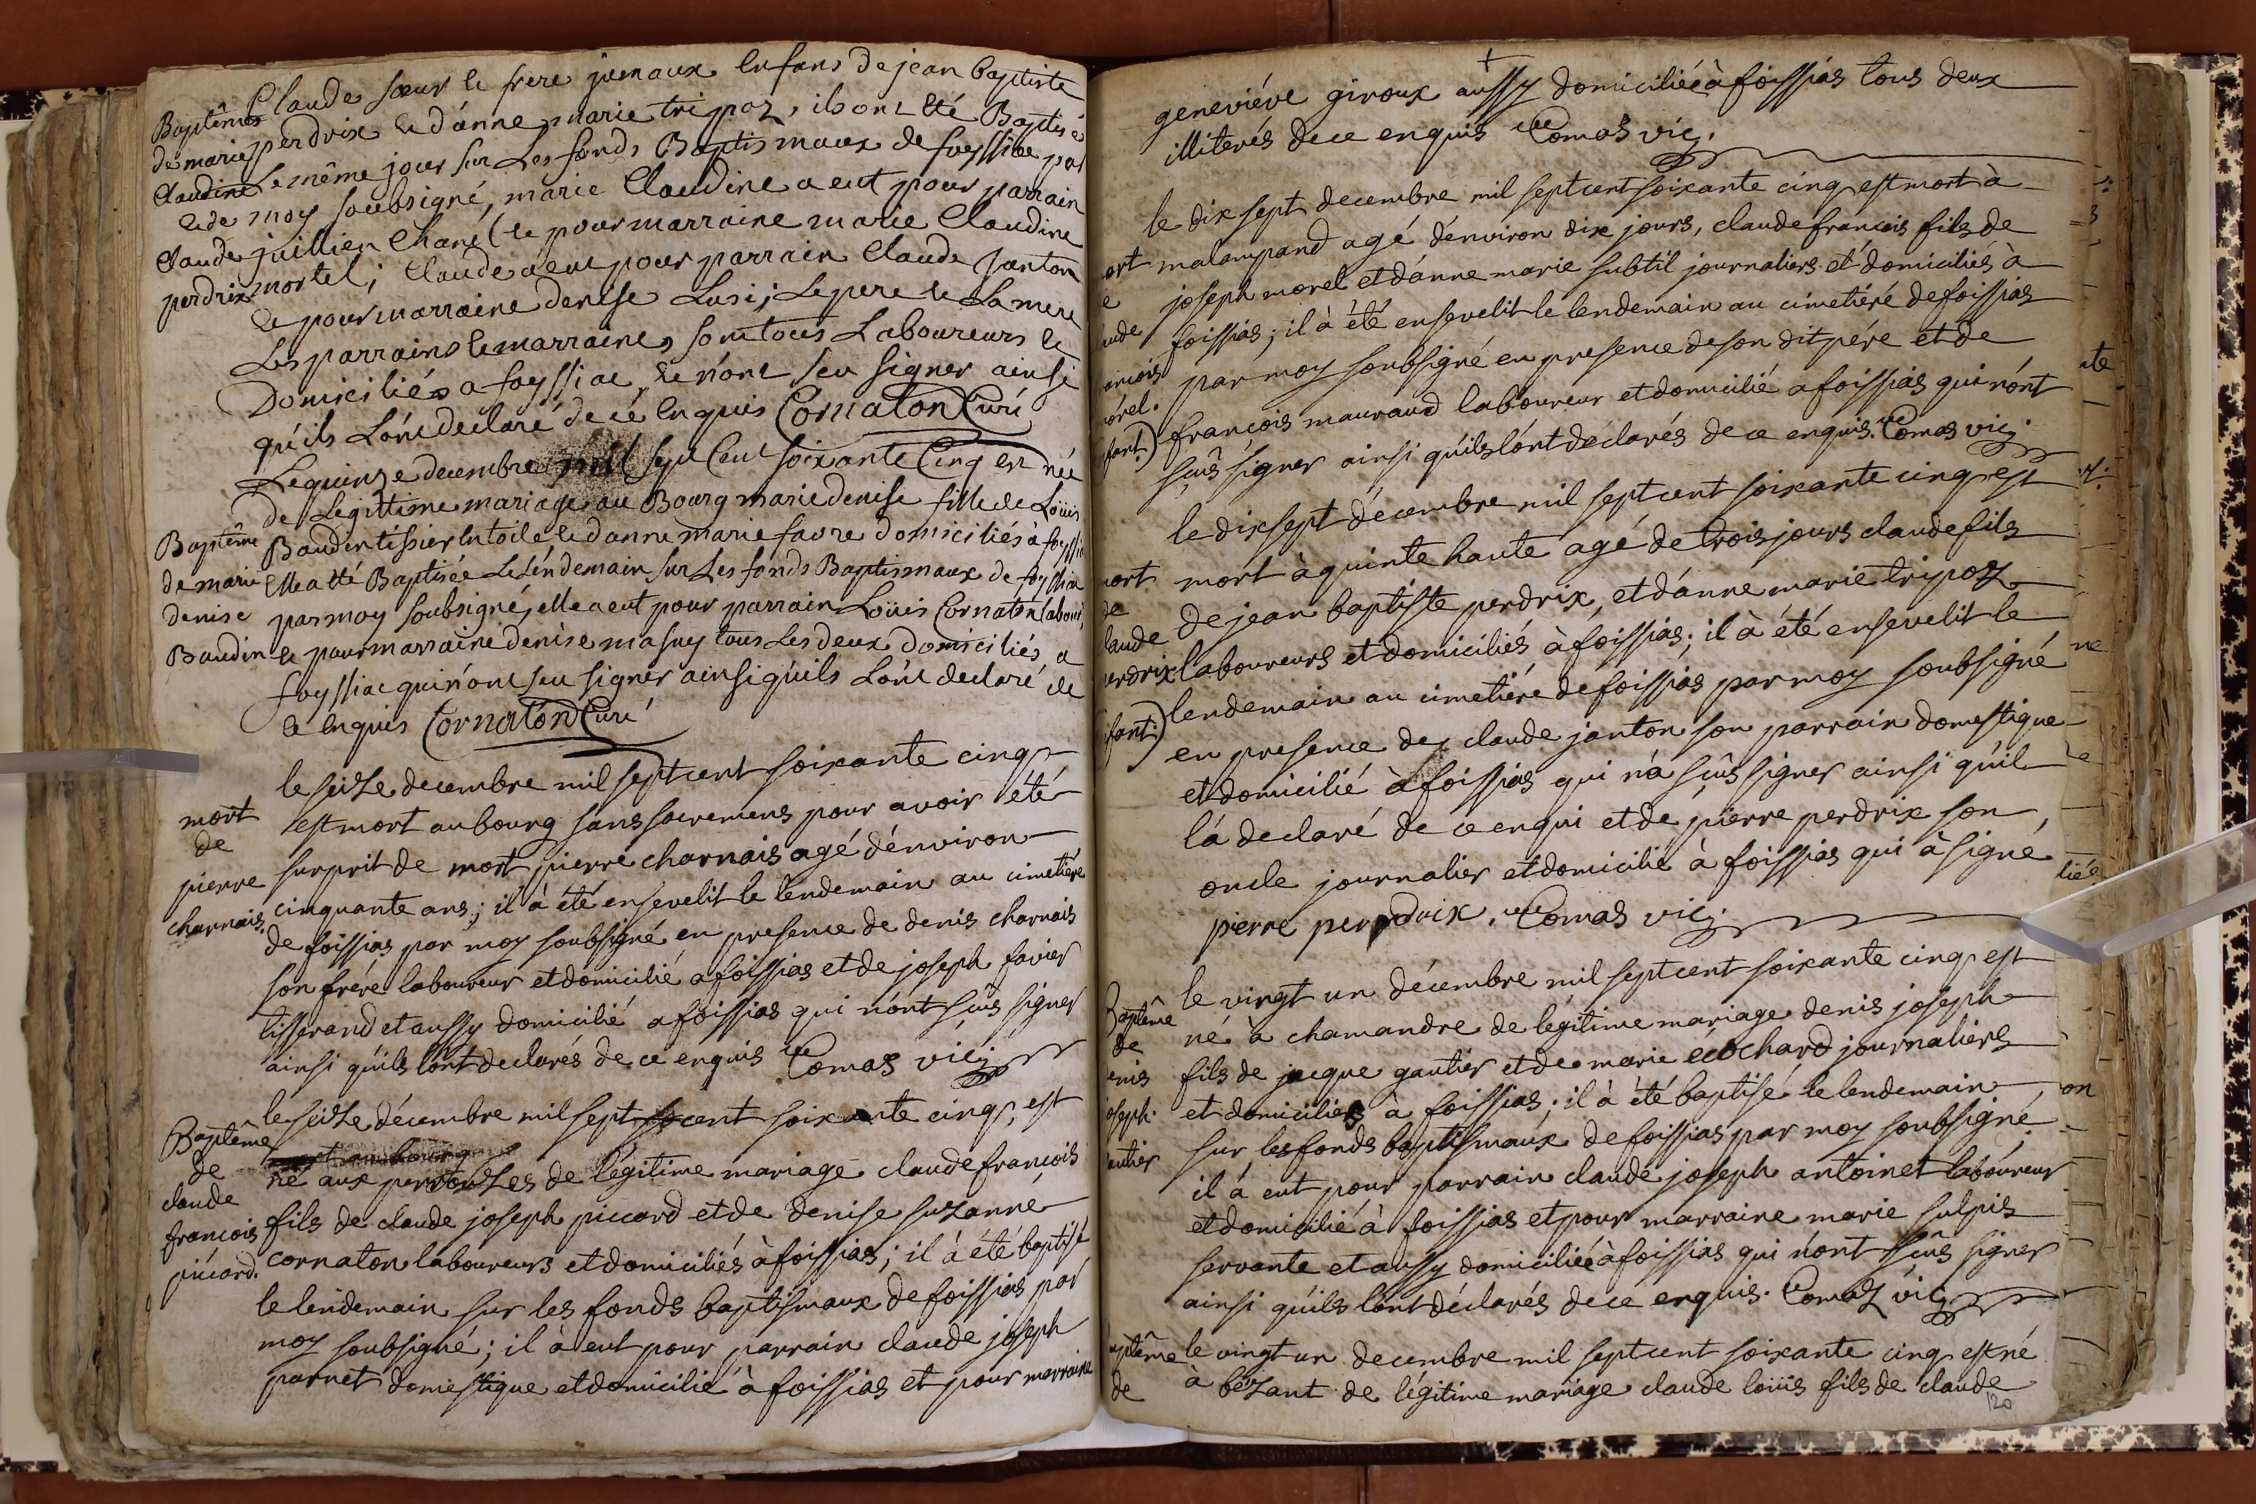 Claude sœur le frere jumaux Enfans de jean baptiste
Baptêmes perdrix et d'anne marie tripoz, ils ont été Baptisé
de marie le même jour sur Les fonds Baptismaux de foyssiac par
Claudine et de moy soubsigné, marie Claudine a eut pour parrain
Claude juillien Chanel et pour marraine marie Claudine
perdrix mortel; Claude a eut pour parrain Claude Janton
et pour marraine denise Lusi; Le pere et La mere
Les parrains et marraines sont tous Laboureurs et
Domiciliés a foyssiac et n'ont seu signer ainsi
qu'ils L'ont declaré de cé Enquis Cornaton Curé
Le quinze decembre mil sept Cent soixante Cinq est née
de Legittime mariage au Bourg marie denise fille de Loüis
Baptême Baudin tissier en toile et d'anne marie favre domiciliés à foyssia
de marie Elle a été Baptisée Le Lendemain sur Les fonds Baptismaux de foyssiac
denise par moy soubsigné, elle a eut pour parrain Loüis Cornaton labour
Baudin et pour marraine denise masuy tous Les deux domiciliés a
foyssiac qui n'ont seu signer ainsi qu'ils L'ont declaré de
ce Enquis Cornaton Curé
le seize decembre mil sept cent soixante cinq
mort est mort au bourg sans sacremens pour avoir été
de surprit de mort pierre charnais agé d'environ
pierre cinquante ans; il à été ensevelit le lendemain au cimetiére
charnais. de foissias par moy soubsigné en presence de denis charnais
son frére laboureur et domicilié a foissias et de joseph favier
tisserand et aussy domicilié a foissias qui n'ont sûs signer
ainsi qu'ils l'ont declarés de ce enquis Comas vic;
le seize décembre mil sept cent soixante cinq, est
Baptême
de né aux de légitime mariage claude françois
claude fils de claude joseph piccard et de denise suzanne
françois cornaton laboureurs et domiciliés à foissias; il à été baptisé
piccard. le lendemain sur les fonds baptismaux de foissias par
moy soubsigné; il à eut pour parrain claude joseph
parnet domestique et domicilié à foissias et pour marraine
geneviéve giroux aussy domiciliée à foissias tous deux
illiterés de ce enquis Comas vic;
le dix sept decembre mil sept cent soixante cinq est mort à
ort malaupand agé d'environ dix jours, claude francois fils de
e joseph morel et d'anne marie subtil journaliers et domiciliés à
ude foissias; il à été ensevelit le lendemain au cimetiére de foissias
ancois par moy soubsigné en presence de son dit pére et de
orel. francois mauraud laboureur et domicilié a foissias qui n'ont
fant.) sûs signer ainsi qu'ils l'ont déclarés de ce enquis. Comas vic;
le dix sept décembre mil sept cent soixante cinq est
ort mort à quinte haute agé de trois jours claude fils
de de jean baptiste perdrix, et d'anne marie tripoz
laude laboureurs et domiciliés à foissias; il à été ensevelit le
erdrix lendemain au cimetiére de foissias par moy soubsigné
fant.) en presence de claude janton son parrain domestique
et domicilié à foissias qui n'a sûs signer ainsi qu'il
l'a declaré de ce enqui et de pierre perdrix son
oncle journalier et domicilié à foissias qui à signé
pierre perrdrix. Comas vic;
le vingt un décembre mil sept cent soixante cinq est
Baptême né à chamandre de légitime mariage denis joseph
de fils de jacque gautier et de marie ecochard journaliers
enis et domiciliés à foissias; il à été baptisé le lendemain
joseph. sur les fonds baptismaux de foissias par moy soubsigné
autier il à eut pour parrain claude joseph antoinet laboureur
et domicilié à foissias et pour marraine marie sulpis
servante et aussy domiciliée à foissias qui n'ont sûs signer
ainsi qu'ils l'ont déclarés de ce enquis. Comas vic;
aptême le vingt un decembre mil sept cent soixante cinq est né
de à bézant de légitime mariage claude loüis fils de claude
120